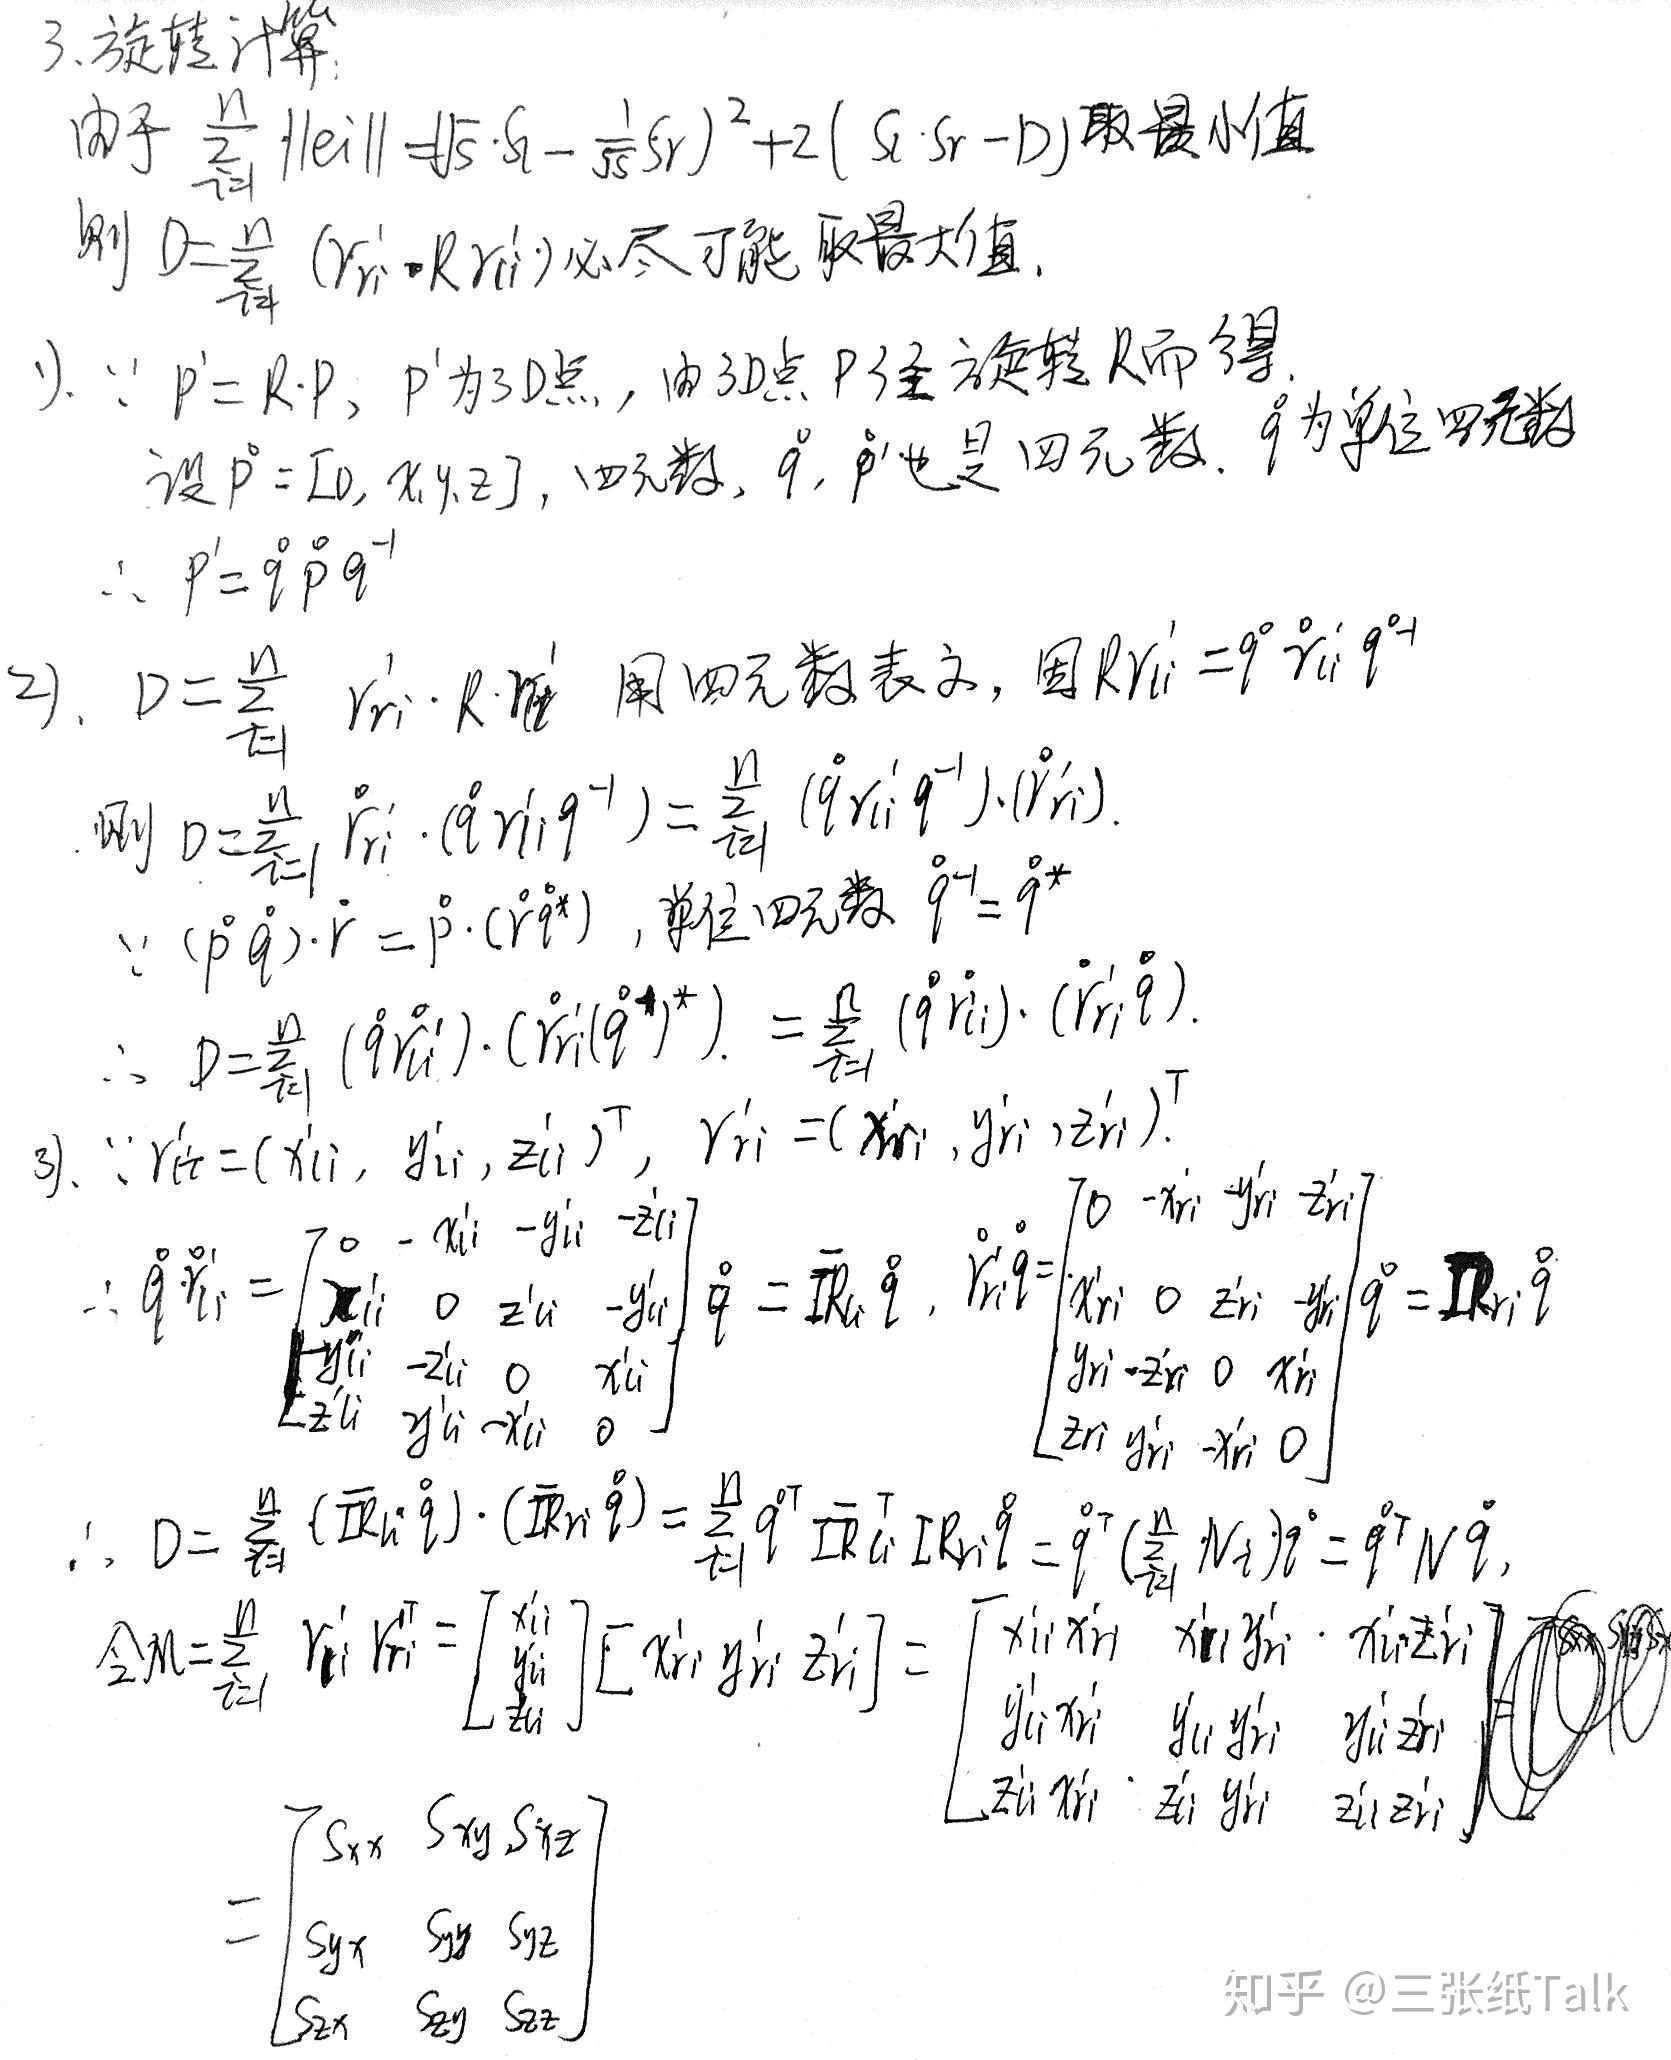 3、旋转计算:
由于 n∑i=1 ||ei|| = (√s·Sl - 1/√s Sr)² + 2(Sl·Sr - D) 取最小值
则 D = n∑i=1 (r'ri · R r'li) 必尽可能取最大值.
1). ∵ p' = R·P, p'为3D点, 由3D点P经旋转R而得.
设p° = [0, x, y, z], 四元数, q°, p°'也是四元数. q°为单位四元数
∴ p' = q° p° q⁻¹
2). D = n∑i=1 r'ri · R · r'li 用四元数表示, 因 Rr'li = q° r°'li q°⁻¹
则 D = n∑i=1 r°'ri · (q° r'li q⁻¹) = n∑i=1 (q° r'li q⁻¹)·(r°'ri).
∵ (p° q°)·r° = p°·(r° q°*), 单位四元数 q°⁻¹ = q°*
∴ D = n∑i=1 (q° r°'li)·(r°'ri (q°*)*). = n∑i=1 (q° r°'li)·(r°'ri q°).
3). ∵ r'li = (x'li, y'li, z'li)ᵀ, r'ri = (x'ri, y'ri, z'ri)ᵀ.
∴ q° r°'li = [0 -x'li -y'li -z'li; x'li 0 z'li -y'li; y'li -z'li 0 x'li; z'li y'li -x'li 0] q° = IR̄li q°, r°'ri q° = [0 -x'ri -y'ri -z'ri; x'ri 0 z'ri -y'ri; yri -z'ri 0 x'ri; zri y'ri -x'ri 0] q° = IRri q°
∴ D = n∑i=1 (IR̄li q°)·(IR̄ri q°) = n∑i=1 q°ᵀ IR̄liᵀ IRri q° = q°ᵀ (n∑i=1 Ni) q° = q°ᵀ N q°,
令M = n∑i=1 r'li r'riᵀ = [x'li; y'li; z'li] [x'ri y'ri z'ri] = [x'li x'ri x'li y'ri x'li z'ri; y'li x'ri y'li y'ri y'li z'ri; z'li x'ri z'li y'ri z'li z'ri]
= [Sxx Sxy Sxz; Syx Syy Syz; Szx Szy Szz]
知乎 @三张纸Talk